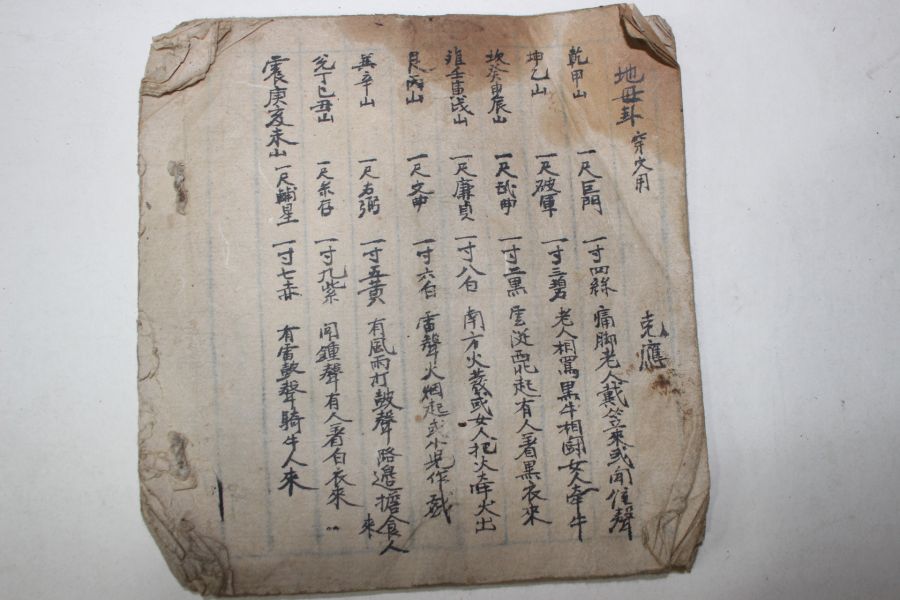 地母卦 穿穴用 克應
乾甲山 一尺巨門 一寸四綠 痛脚老人戴笠來或聞住聲
坤乙山 一尺破軍 一寸三碧 老人相罵黒牛相鬪女人牽牛
坎癸申辰山 一尺武曲 一寸二黒 雲從西北起有人着黒衣來
離壬寅戌山 一尺廉貞 一寸八白 南方火發或女人把火牽火出
艮丙山 一尺文曲 一寸六白 雷聲火烟起或小児作戯
巽辛山 一尺右弼 一寸五黄 有風雨打鼓聲路邉擔食人來
兌丁巳丑山 一尺祿存 一寸九紫 聞鍾聲有人着白衣來
震庚亥未山 一尺輔星 一寸七赤 有雷鼓聲騎牛人來